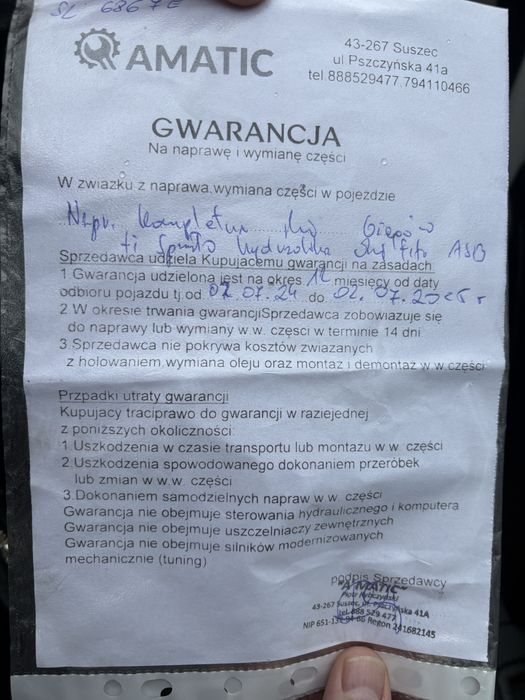 SL 6867E
AMATIC
43-267 Suszec
ul.Pszczyńska 41a
tel.888529477.794110466
GWARANCJA
Na naprawę i wymianę części
W zwiazku z naprawa.wymiana części w pojezdzie
Napr. kompletna
hydraulika ASB
Sprzedawca udziela Kupujacemu gwarancji na zasadach
1.Gwarancja udzielona jest na okres 12 miesięcy od daty
odbioru pojazdu tj.od 02.07.24 do 02.07.2025 r
2 W okresie trwania gwarancjiSprzedawca zobowiazuje się
do naprawy lub wymiany w.w. części w terminie 14 dni
3 Sprzedawca nie pokrywa kosztów zwiazanych
z holowaniem.wymiana oleju oraz montaz i demontaz w w części
Przpadki utraty gwarancji
Kupujacy traciprawo do gwarancji w raziejednej
z ponizszych okoliczności:
1.Uszkodzenia w czasie transportu lub montażu w w. części
2.Uszkodzenia spowodowanego dokonaniem przeróbek
lub zmian w w.w. części
3.Dokonaniem samodzielnych napraw w.w. części
Gwarancja nie obejmuje sterowania hydraulicznego i komputera
Gwarancja nie obejmuje uszczelniaczy zewnętrznych
Gwarancja nie obejmuje silników modernizowanych
mechanicznie (tuning)
podpis Sprzedawcy
"AMATIC"
43-267 Suszec, ul. Pszczyńska 41A
tel. 888 529 477
Regon 241682145